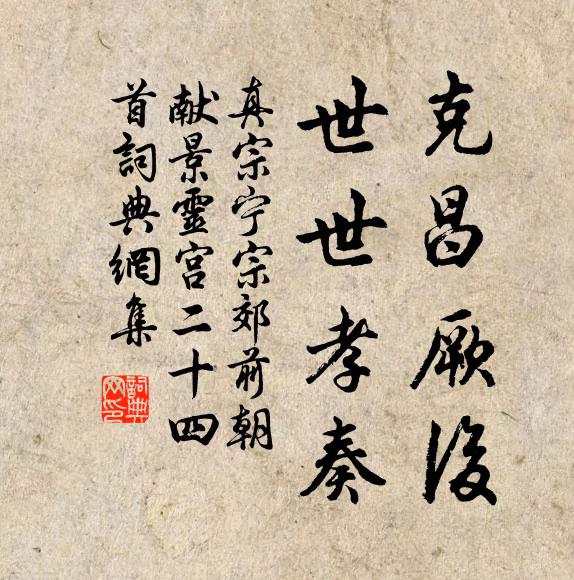 克昌厥後
世世孝奏
真宗宁宗郊前朝
献景靈宫二十四
首詞典網集
詞典
网印